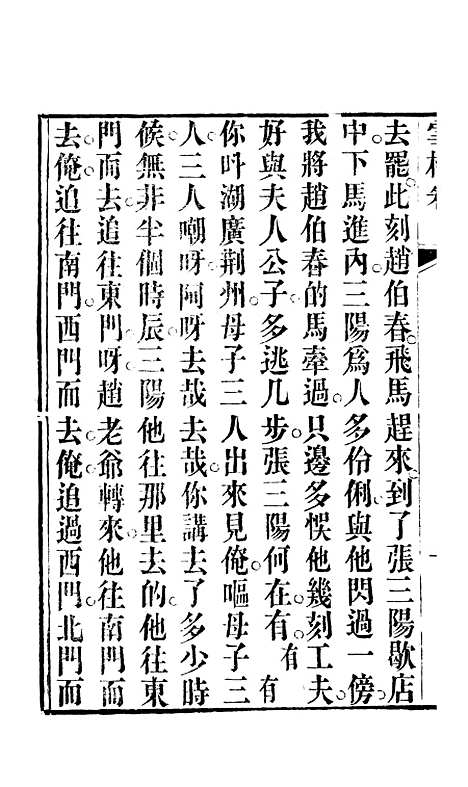 去罷。此刻趙伯春。飛馬趕來到了張三陽歇店
中。下馬進內。三陽爲人多伶俐。與他閃過一傍。
我將趙伯春的馬牽過。只邊多悞他幾刻工夫。
好與夫人公子多逃几步。張三陽何在。有 有 有
你叫湖廣荊州母子三人出來見俺。嘔母子三
人。三人嘲呀阿呀去哉去哉。你講去了多少時
候。無非半個時辰。三陽他往那里去的。他往東
門而去。追往東門。呀趙老爺轉來。他往南門而
去。俺追往南門。西門而去。俺追過西門。北門而